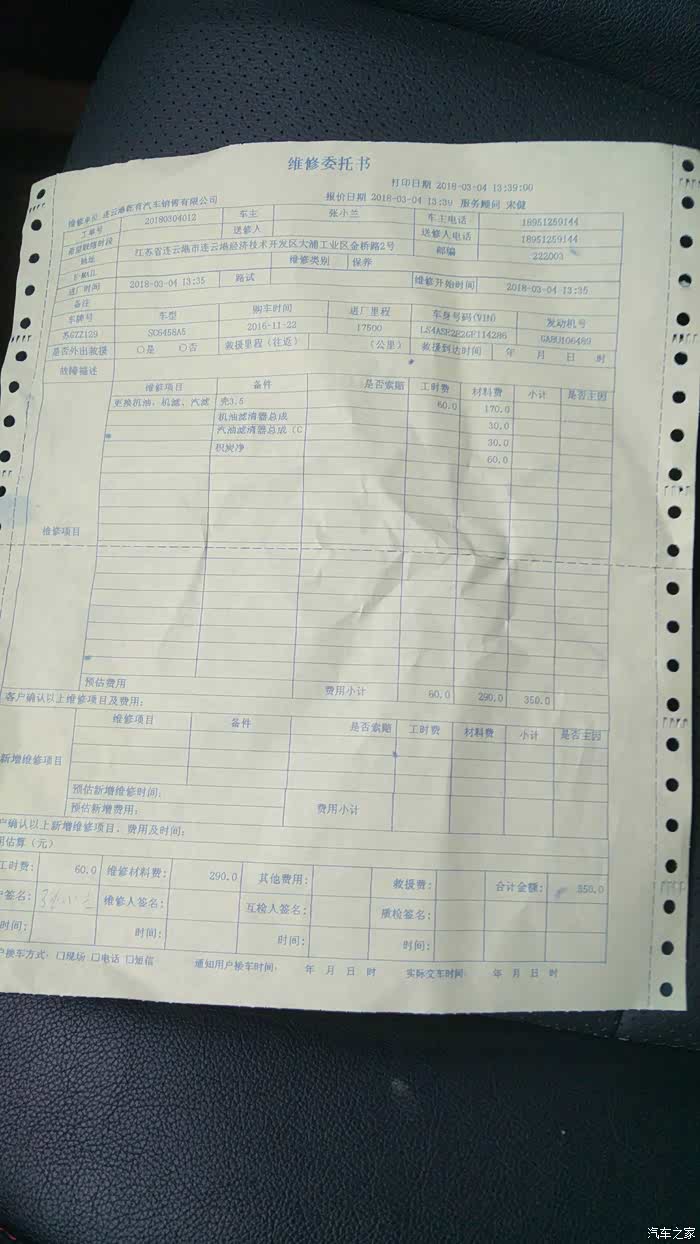 维修委托书
打印日期 2018-03-04 13:39:00
维修单位 连云港乾有汽车销售有限公司 报价日期 2018-03-04 13:39 服务顾问 宋健
工单号 20180304012 车主 张小兰 车主电话 18951259144
希望联络时段 送修人 送修人电话 18951259144
地址 江苏省连云港市连云港经济技术开发区大浦工业区金桥路2号 邮编 222003
E-MAIL 维修类别 保养
进厂时间 2018-03-04 13:35 路试 维修开始时间 2018-03-04 13:35
备注
车牌号 车型 购车时间 进厂里程 车身号码(VIN) 发动机号
苏G7Z129 SC6458A5 2016-11-22 17500 LS4ASE2E2GF114286 GABU106489
是否外出救援 ○是 ○否 救援里程(往返) (公里) 救援到达时间 年 月 日 时
故障描述
维修项目 备件 是否索赔 工时费 材料费 小计 是否主因
更换机油、机滤、汽滤 壳3.5 60.0 170.0
机油滤清器总成 30.0
汽油滤清器总成（C 30.0
积炭净 60.0
维修项目
预估费用 费用小计 60.0 290.0 350.0
客户确认以上维修项目及费用：
维修项目 备件 是否索赔 工时费 材料费 小计 是否主因
新增维修项目
预估新增维修时间：
预估新增费用： 费用小计
户确认以上新增维修项目、费用及时间：
用估算（元）
工时费： 60.0 维修材料费： 290.0 其他费用： 救援费： 合计金额： 350.0
签名： 维修人签名： 互检人签名： 质检签名：
时间： 时间： 时间： 时间：
户接车方式：口现场 口电话 口短信 通知用户接车时间： 年 月 日 时 实际交车时间： 年 月 日 时
汽车之家